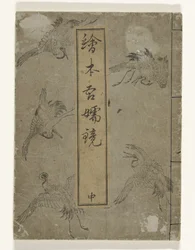 繪本宮嬬鏡
中